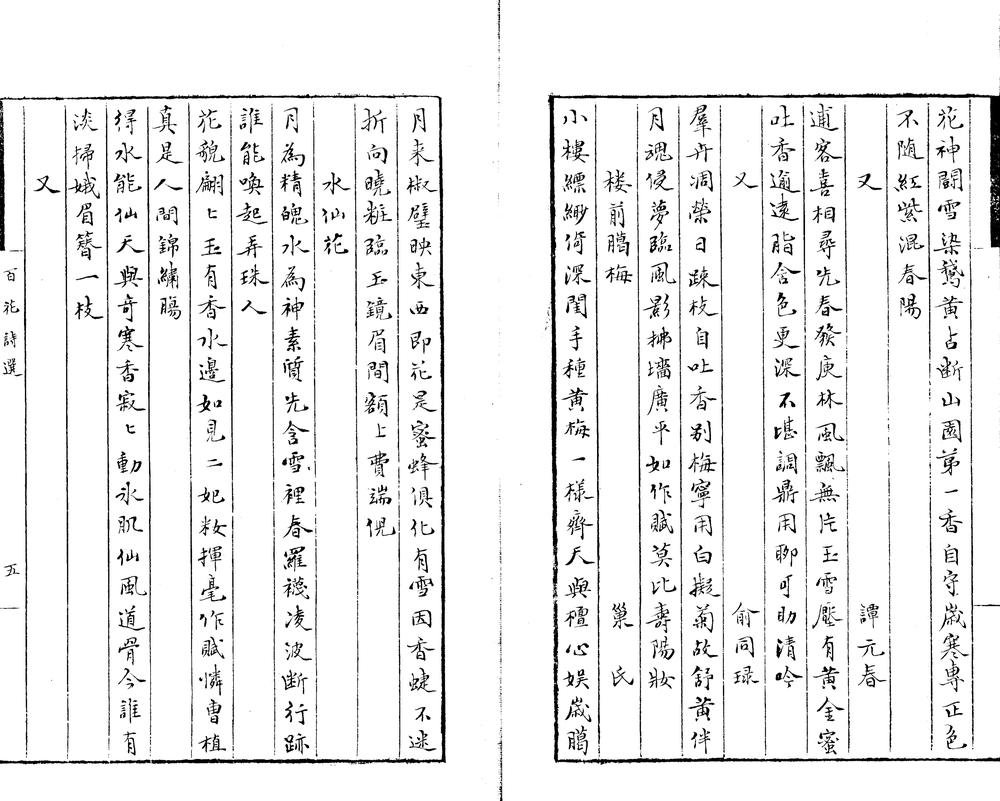 花神鬪雪染鵞黃占斷山園第一香自守歲寒專正色
不随紅紫混春陽
又 譚元春
逋客喜相尋先春發庾林風飄無片玉雪壓有黃金蜜
吐香逾遠脂含色更深不堪調鼎用聊可助清吟
又 俞同琭
羣卉凋榮日踈枝自吐香别梅寧用白擬菊故舒黃伴
月魂侵夢臨風影拂墻廣平如作賦莫比壽陽妝
楼前臈梅 巢氏
小樓縹緲倚深閨手種黃梅一様齊天與檀心娱歲臈
月来椒壁映東西即花是蜜蜂俱化有雪因香蜨不迷
折向曉粧臨玉鏡眉間額上費端倪
水仙花
月為精魄水為神素質先含雪裡春羅襪凌波断行跡
誰能喚起弄珠人
花貌翩〻玉有香水邊如見二妃妝揮毫作賦憐曹植
真是人間錦繡腸
得水能仙天與竒寒香寂〻動冰肌仙風道骨今誰有
淡掃娥眉簪一枝
又
百花詩選
五